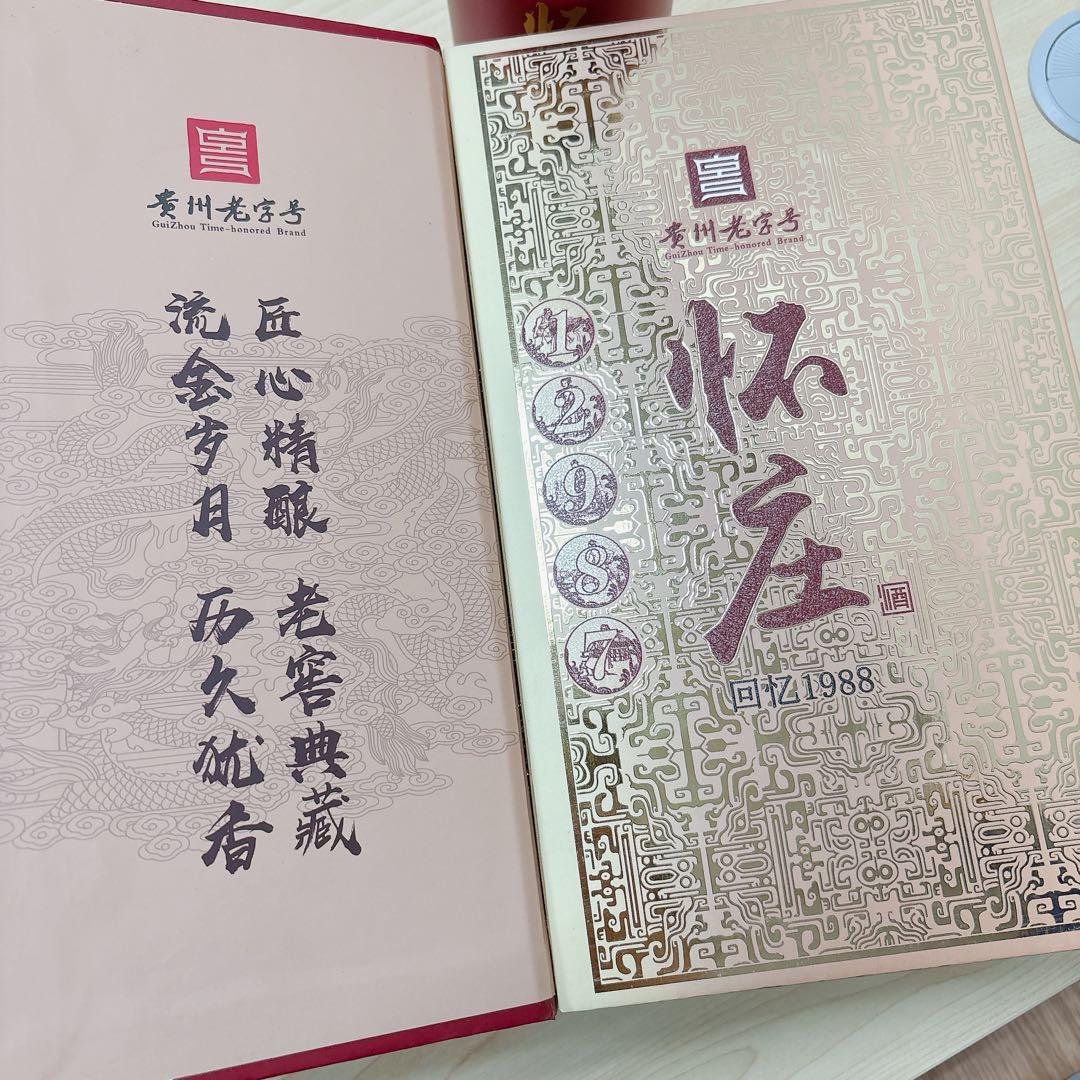 怀
貴州老字号
GuiZhou Time-honored Brand
匠心精酿 老窖典藏
流金岁月 历久犹香
貴州老字号
GuiZhou Time-honored Brand
1
2
9
8
7
怀庄
酒
回忆1988